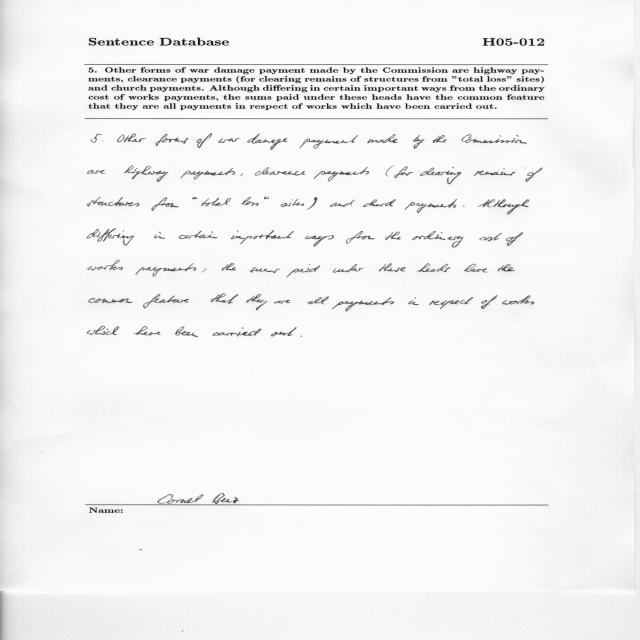 Sentence Database H05-012
5. Other forms of war damage payment made by the Commission are highway pay-
ments, clearance payments (for clearing remains of structures from "total loss" sites)
and church payments. Although differing in certain important ways from the ordinary
cost of works payments, the sums paid under these heads have the common feature
that they are all payments in respect of works which have been carried out.
5. Other forms of war damage payment made by the Commission
are highway payments, clearance payments (for clearing remains of
structures from "total loss" sites) and church payments. Although
differing in certain important ways from the ordinary cost of
works payments, the sums paid under these heads have the
common feature that they are all payments in respect of works
which have been carried out.
Cornel
Name: